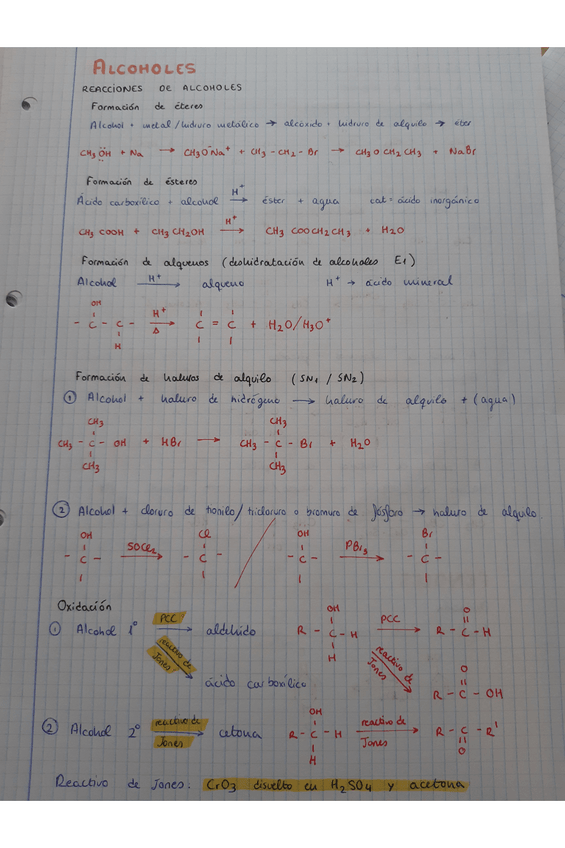 ALCOHOLES
REACCIONES DE ALCOHOLES
Formación de éteres
Alcohol + metal/hidruro metálico → alcóxido + hidruro de alquilo → éter
CH3ÖH + Na → CH3O⁻Na⁺ + CH3-CH2-Br → CH3OCH2CH3 + NaBr
Formación de ésteres
Ácido carboxílico + alcohol H⁺→ éster + agua cat = ácido inorgánico
CH3COOH + CH3CH2OH H⁺→ CH3COOCH2CH3 + H2O
Formación de alquenos (deshidratación de alcoholes E1)
Alcohol H⁺→ alqueno H⁺ → ácido mineral
OH
- C - C - H⁺→ Δ C = C + H2O/H3O⁺
H
Formación de haluros de alquilo (SN1 / SN2)
① Alcohol + haluro de hidrógeno → haluro de alquilo + (agua)
CH3 CH3
CH3 - C - OH + HBr → CH3 - C - Br + H2O
CH3 CH3
② Alcohol + cloruro de tionilo/tricloruro o bromuro de fósforo → haluro de alquilo
OH Cl OH Br
- C - SOCl2→ - C - - C - PBr3→ - C -
Oxidación
① Alcohol 1º PCC→ aldehído
reactivo de Jones
ácido carboxílico
OH O
R - C - H PCC→ R - C - H
H
reactivo de Jones
O
R - C - OH
② Alcohol 2º reactivo de Jones→ cetona
OH
R - C - H reactivo de Jones→ R - C - R'
H O
Reactivo de Jones: CrO3 disuelto en H2SO4 y acetona